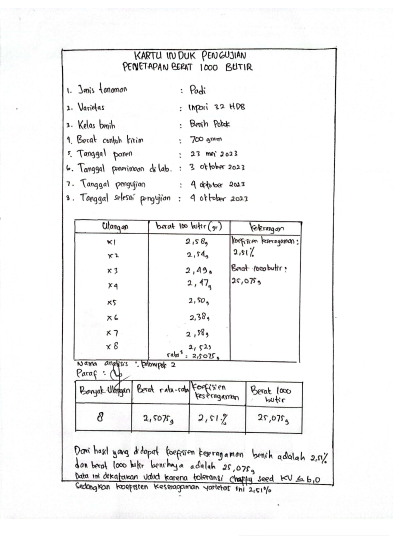 KARTU INDUK PENGUJIAN
PENETAPAN BERAT 1000 BUTIR
1. Jenis tanaman : Padi
2. Varietas : Inpari 32 HDB
3. Kelas benih : Benih Pokok
4. Berat contoh kirim : 700 gram
5. Tanggal panen : 23 mei 2023
6. Tanggal penerimaan di lab. : 3 oktober 2023
7. Tanggal pengujian : 4 oktober 2023
8. Tanggal selesai pengujian : 4 oktober 2023
Ulangan berat 100 butir (gr) keterangan
x1 2,58g koefisien keseragaman :
x2 2,54g 2,51%
x3 2,49g Berat 1000 butir :
x4 2,47g 25,075g
x5 2,50g
x6 2,38g
x7 2,58g
x8 2,52g
rata² : 2,5075g
Nama analisis : kelompok 2
Paraf :
Banyak Ulangan Berat rata-rata Koefisien keseragaman Berat 1000 butir
8 2,5075g 2,51% 25,075g
Dari hasil yang didapat koefisien keseragaman benih adalah 2,51%
dan berat 1000 butir benihnya adalah 25,075g
Data ini dikatakan valid karena toleransi chaffy seed KV ≤ 6,0
Sedangkan koefisien keseragaman varietas ini 2,51%